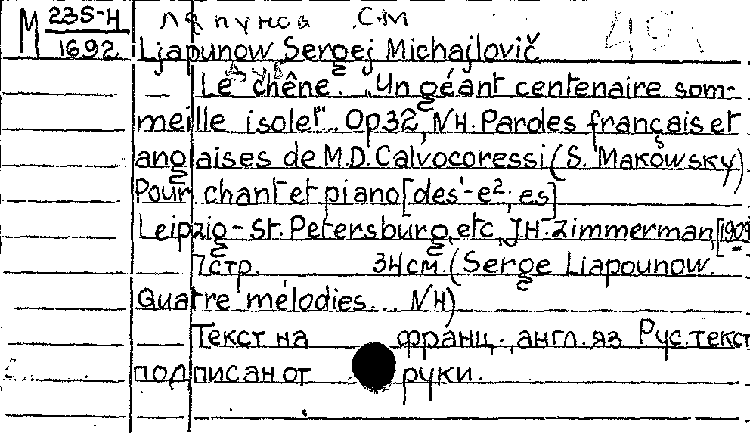 М 235-Н Ляпунов С.М
1692 Ljapunow Sergej Michajlovič
Le chêne. „Un géant centenaire som-
meille isolé". Op 32, N4. Paroles français et
anglaises de M.D. Calvocoressi (S. Makowsky)
Pour chant et piano [des'-e²; es]
Leipzig - St. Petersburg, etc, J.H. Zimmerman, [1909
7 стр. 34 см. (Serge Liapounow.
Quatre mélodies... N4)
Текст на франц., англ. яз Рус. текст
подписан от руки.